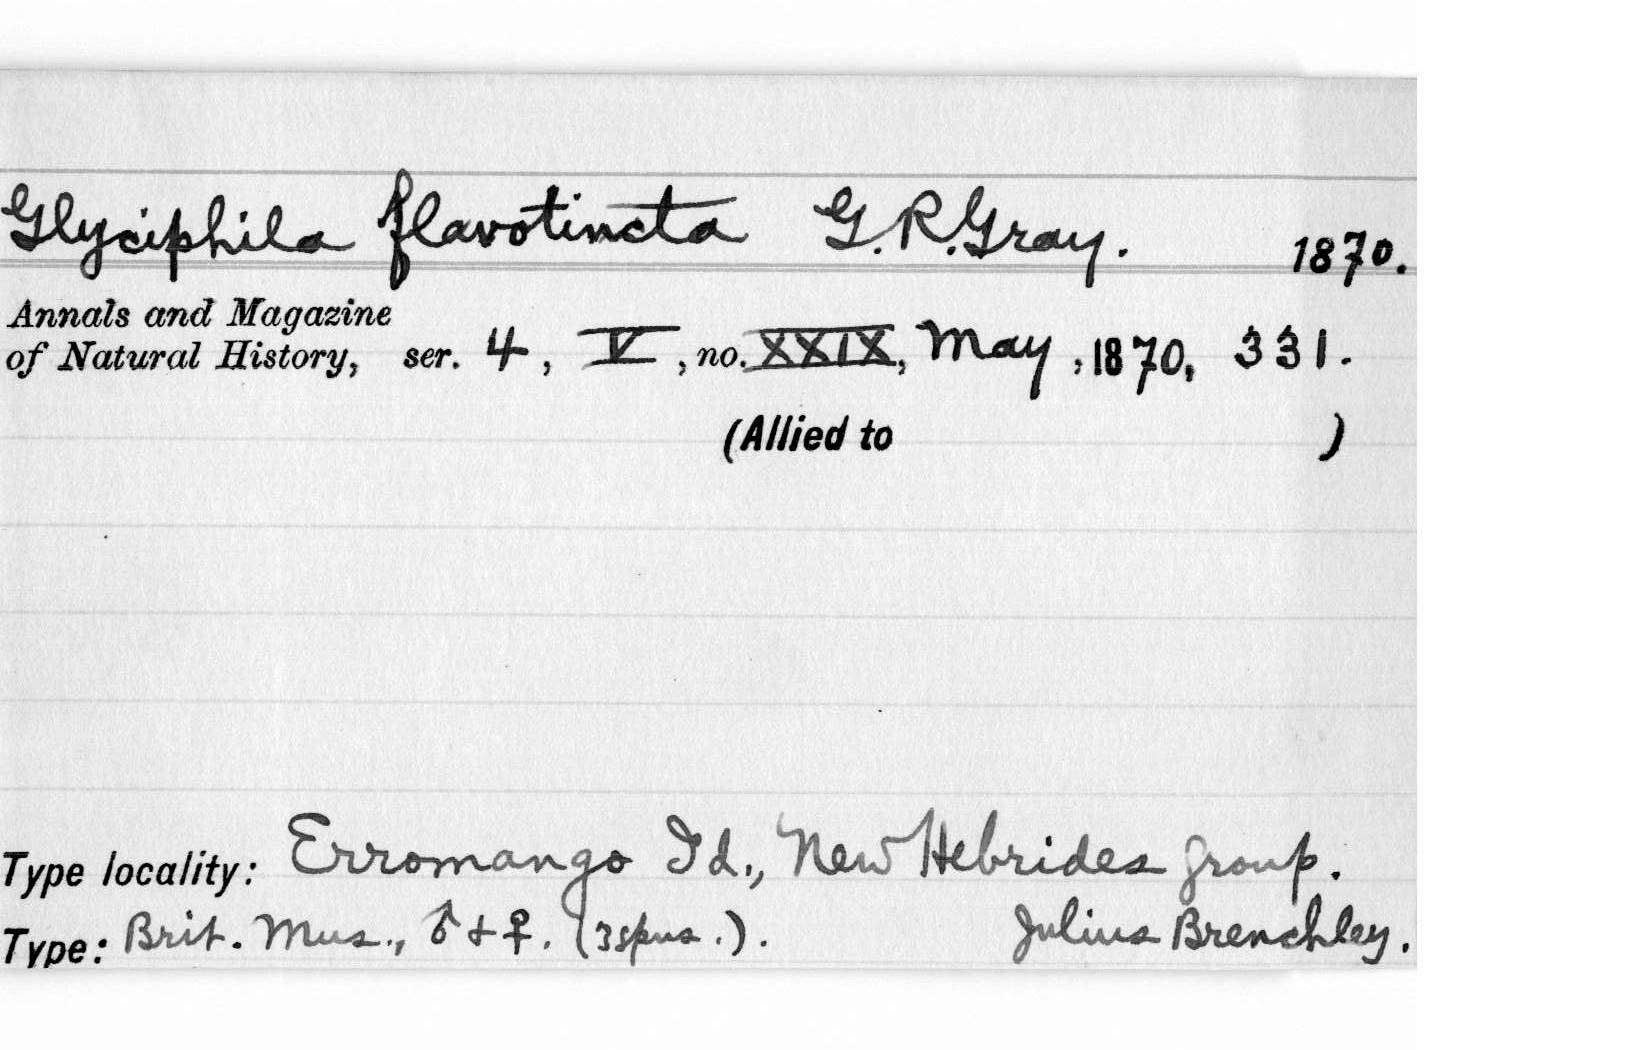 Glyciphila flavotincta G. R. Gray. 1870.
Annals and Magazine
of Natural History, ser. 4, V, no. XXIX, May, 1870, 331.
(Allied to )
Type locality: Erromango Id., New Hebrides group.
Type: Brit. Mus., ♂ + ♀. (3 spns.). Julius Brenchley.